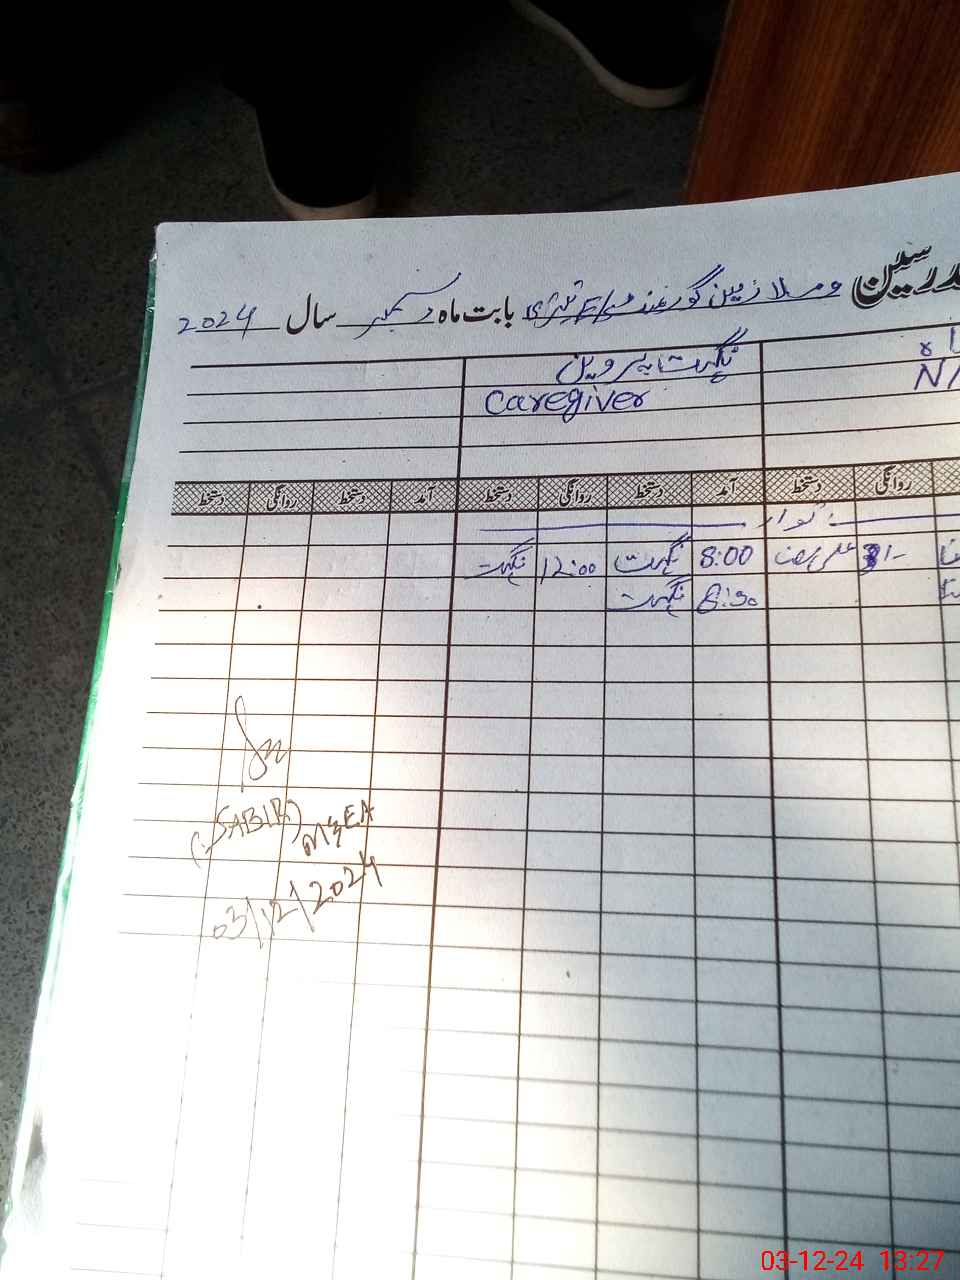 مدرسین و ملازمین گورنمنٹ بابت ماہ دسمبر سال 2024
نگہت پروین
Caregiver
آمد دستخط روانگی دستخط آمد دستخط روانگی دستخط
اتوار
8:00 نگہت 12:00 نگہت
8:30 نگہت
علی رضا
(SABIR)
M&EA
03/12/2024
03-12-24 13:27